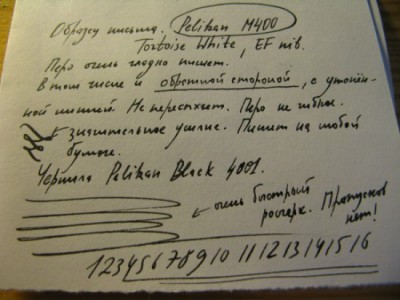 Образец письма. Pelikan M400
Tortoise White, EF nib.
Перо очень гладко пишет.
В том числе и обратной стороной, с утончён-
ной линией. Не пересыхает. Перо не гибкое.
← значительное усилие. Пишет на любой
бумаге.
Чернила Pelikan Black 4001.
← очень быстрый
росчерк. Пропусков
нет!
12345678910 11 12 13 14 15 16